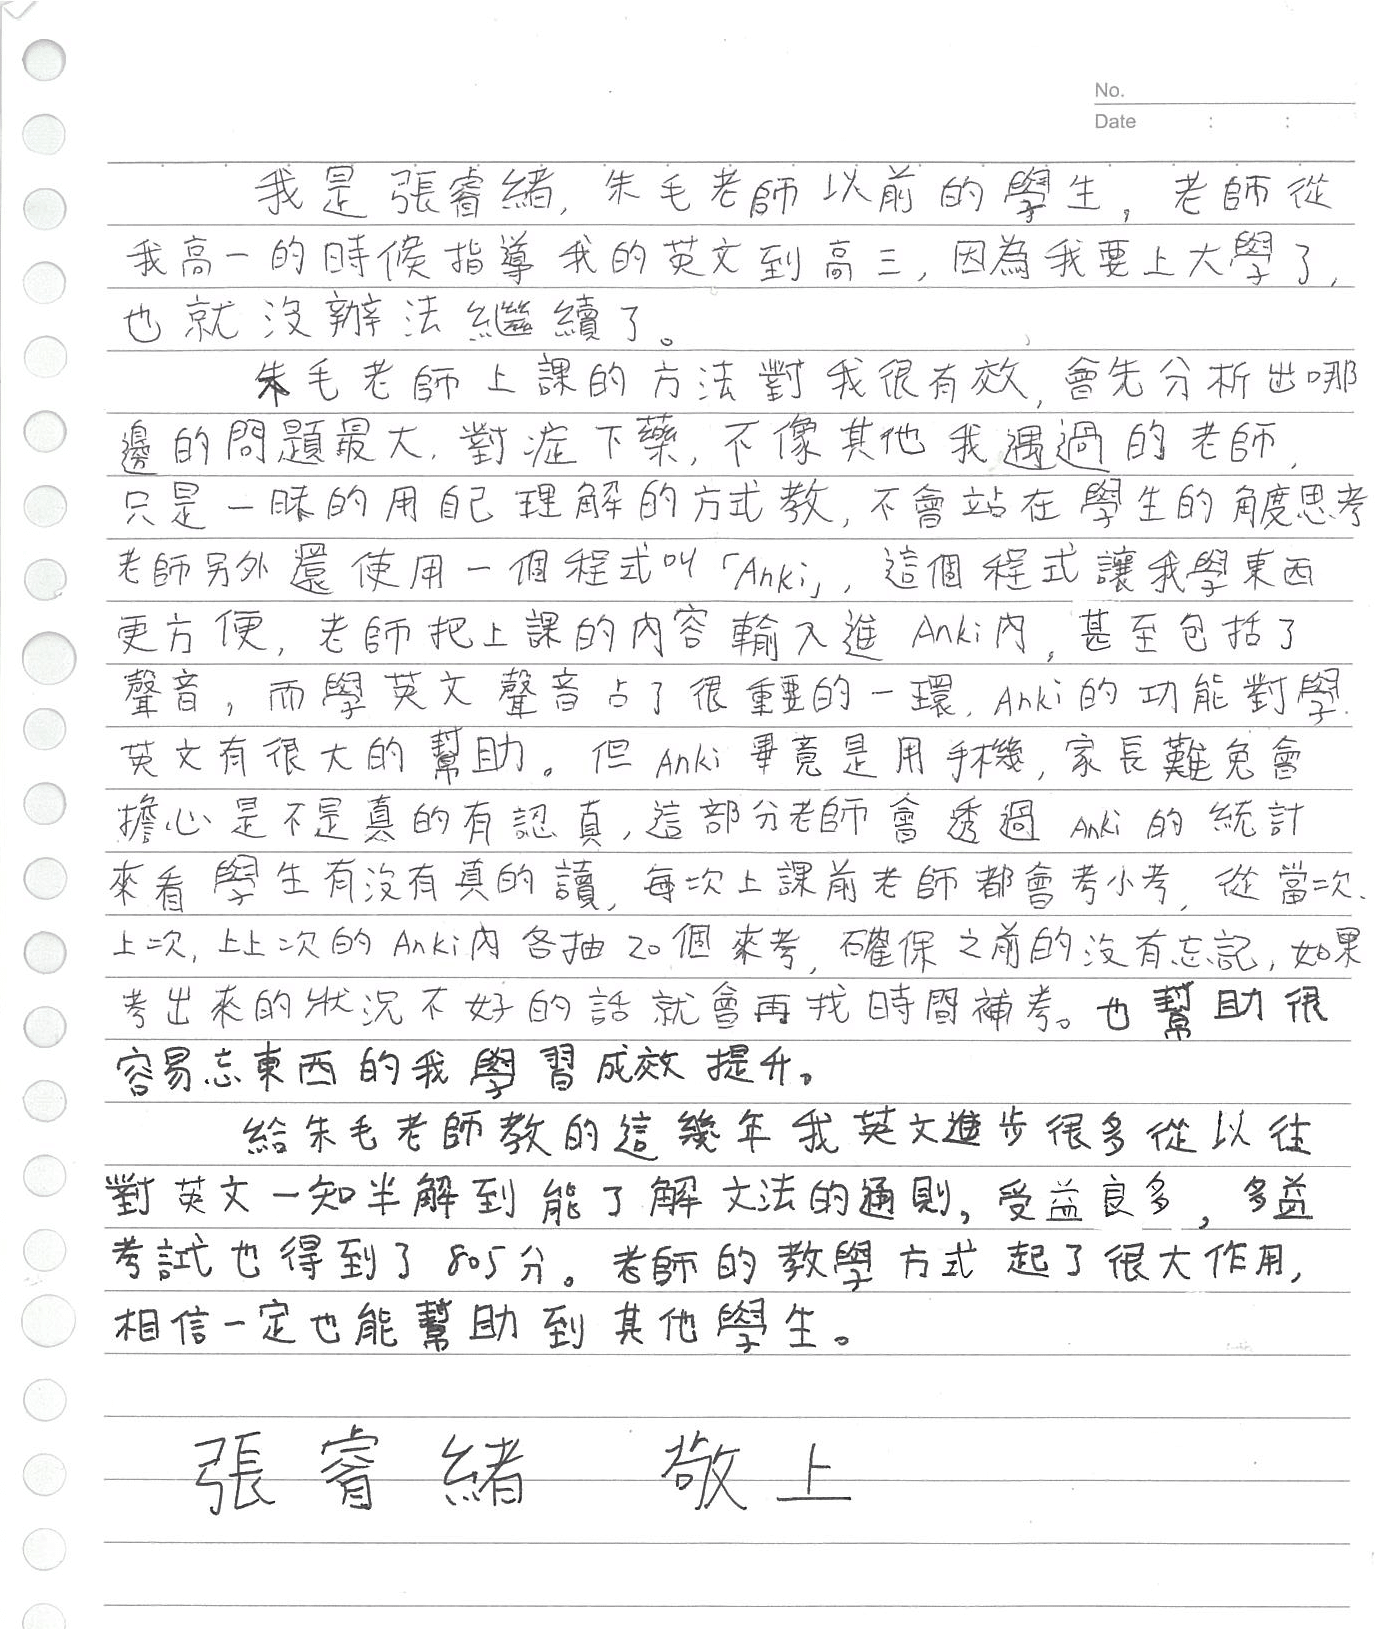 No.
Date : :
我是張睿緒, 朱毛老師以前的學生, 老師從
我高一的時候指導我的英文到高三, 因為我要上大學了,
也就沒辦法繼續了。
朱毛老師上課的方法對我很有效, 會先分析出哪
邊的問題最大, 對症下藥, 不像其他我遇過的老師,
只是一昧的用自己理解的方式教, 不會站在學生的角度思考
老師另外還使用一個程式叫「Anki」, 這個程式讓我學東西
更方便, 老師把上課的內容輸入進 Anki內, 甚至包括了
聲音, 而學英文聲音占了很重要的一環. Anki的功能對學
英文有很大的幫助。但 Anki 畢竟是用手機, 家長難免會
擔心是不是真的有認真, 這部分老師會透過 Anki 的統計
來看學生有沒有真的讀, 每次上課前老師都會考小考, 從當次、
上次, 上上次的 Anki內各抽20個來考, 確保之前的沒有忘記, 如果
考出來的狀況不好的話就會再找時間補考。也幫助很
容易忘東西的我學習成效提升。
給朱毛老師教的這幾年我英文進步很多從以往
對英文一知半解到能了解文法的通則, 受益良多, 多益
考試也得到了805分。老師的教學方式起了很大作用,
相信一定也能幫助到其他學生。
張睿緒 敬上